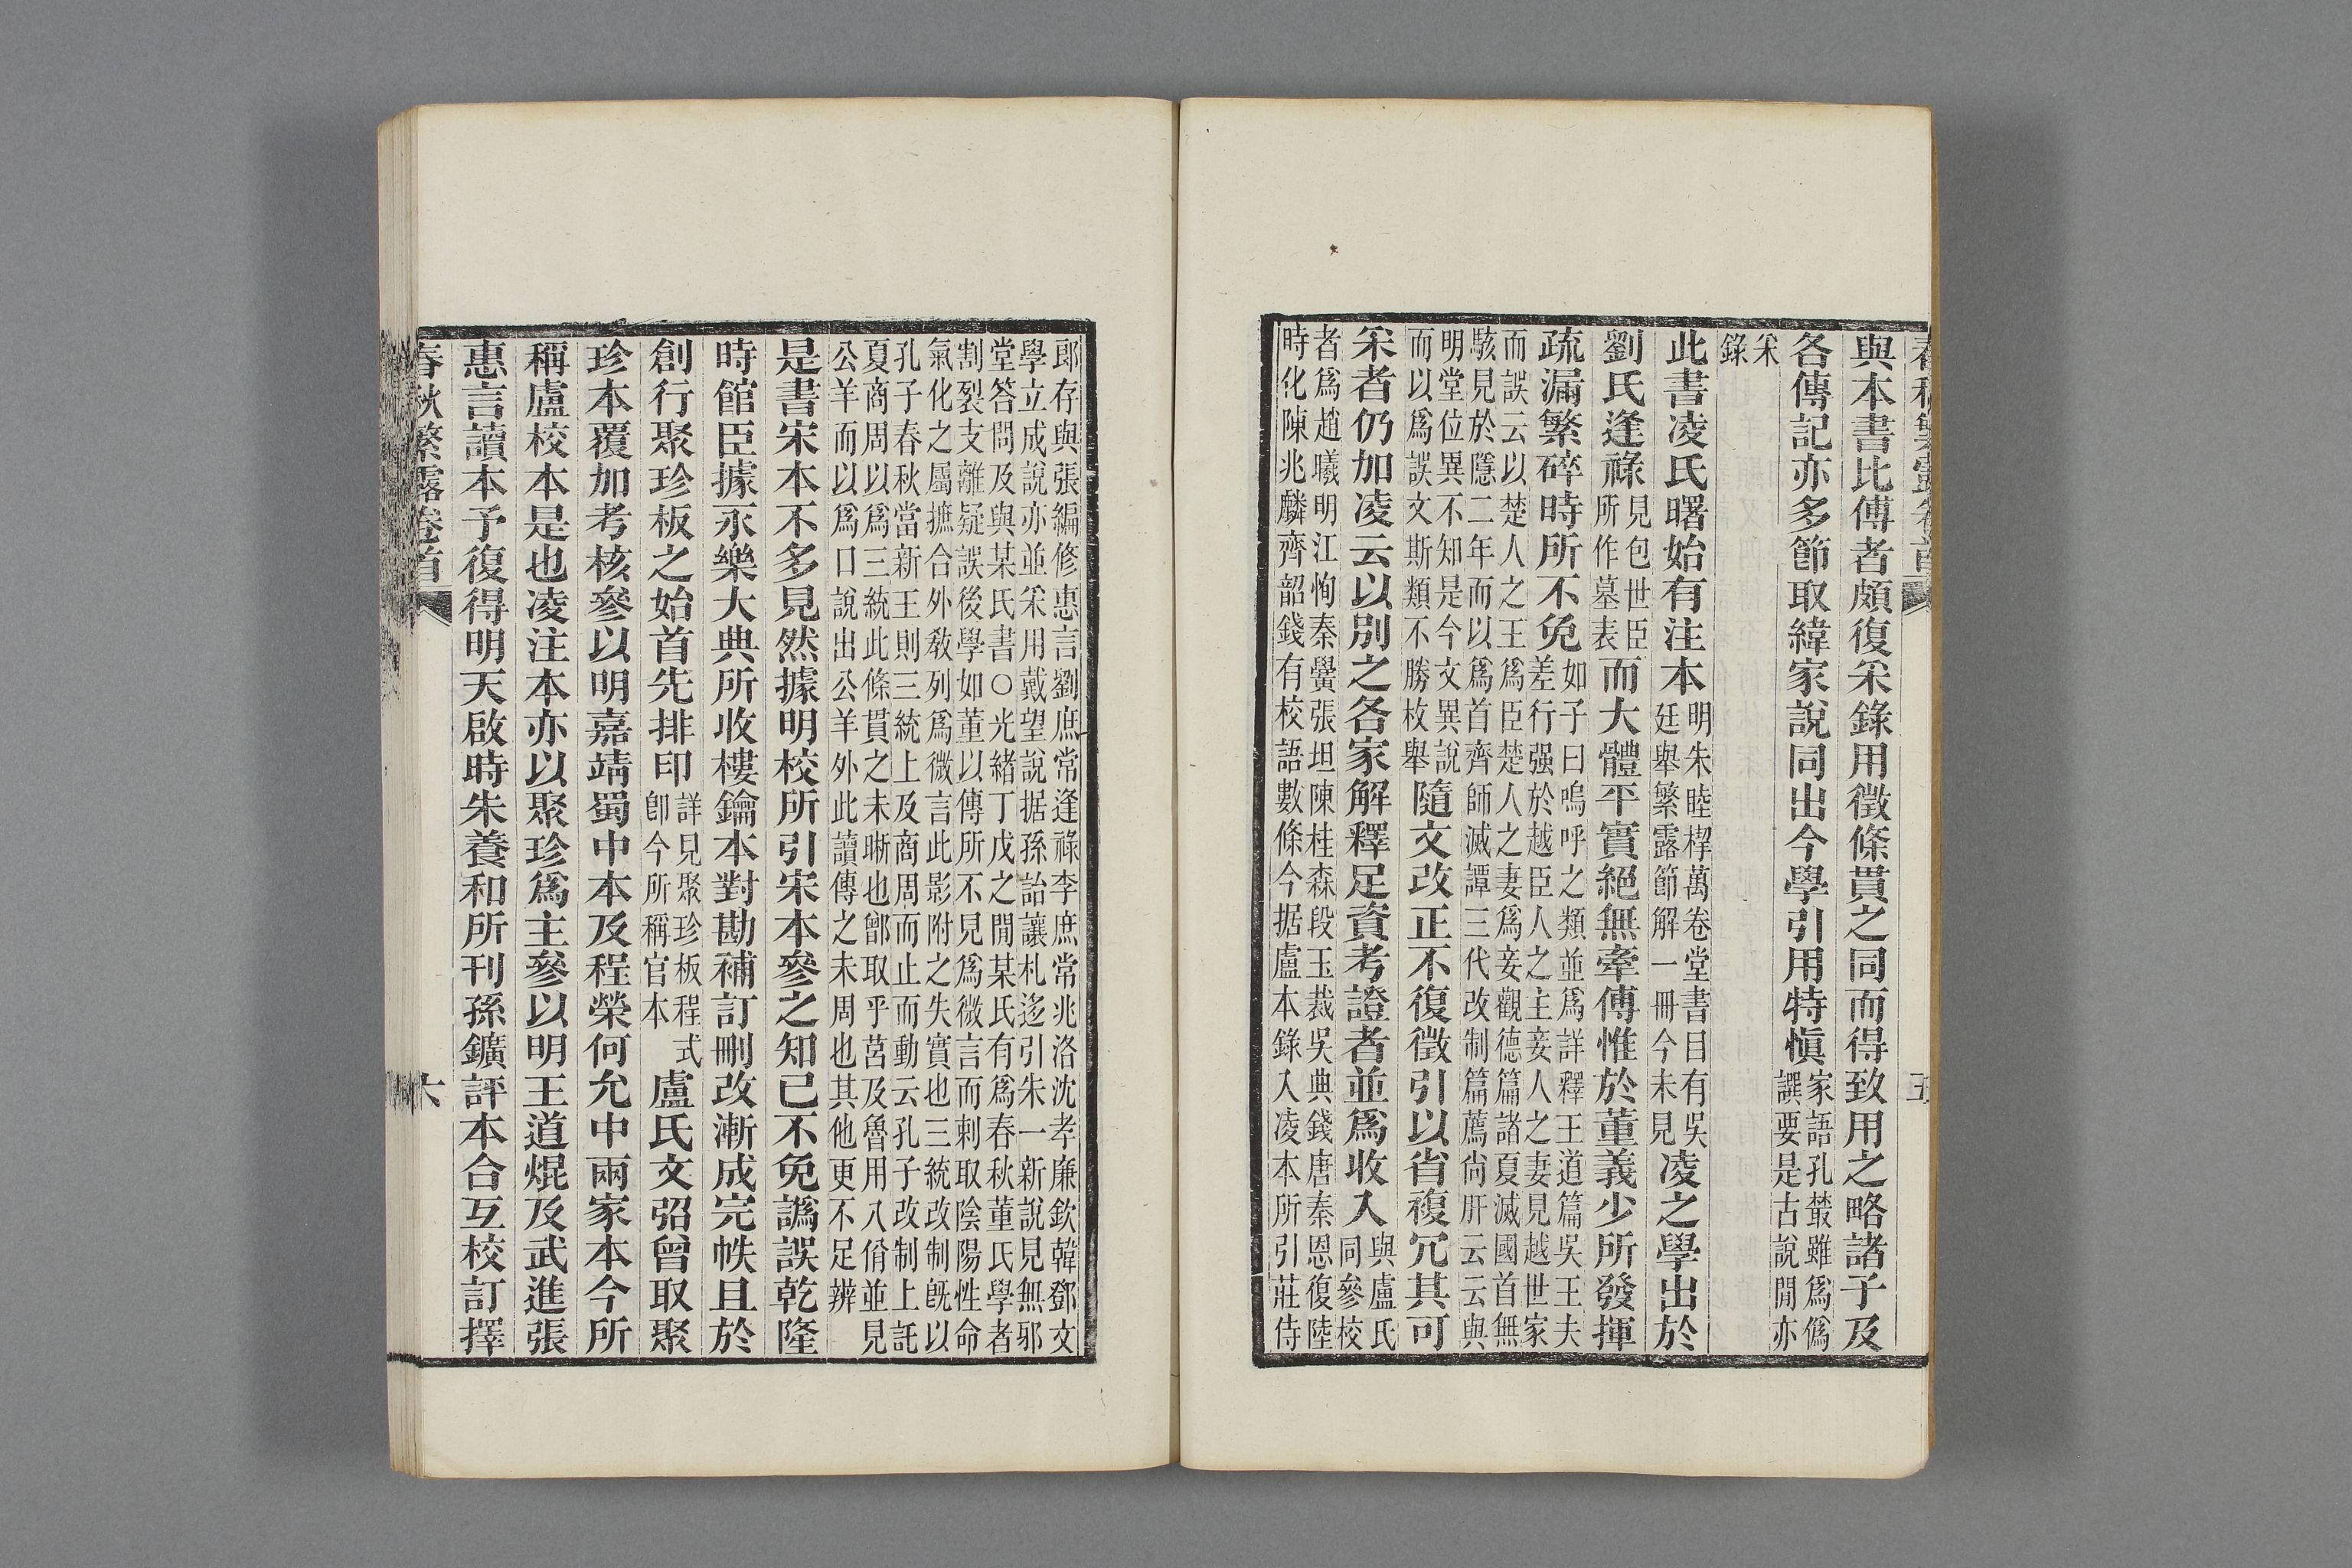 春秋繁露卷首
五
與本書比傅者頗復采錄用徵條貫之同而得致用之略諸子及
各傳記亦多節取緯家說同出今學引用特愼家語孔叢雖爲僞
譔要是古說閒亦
采
錄
此書凌氏曙始有注本明朱睦㮮萬卷堂書目有吳
廷舉繁露節解一冊今未見凌之學出於
劉氏逢祿見包世臣
所作墓表而大體平實絕無牽傅惟於董義少所發揮
疏漏繁碎時所不免如子曰嗚呼之類並爲詳釋王道篇吳王夫
差行强於越臣人之主妾人之妻見越世家
而誤云以楚人之王爲臣楚人之妻爲妾觀德篇諸夏滅國首無
駭見於隱二年而以爲首齊師滅譚三代改制篇薦尙肝云云與
明堂位異不知是今文異說
而以爲誤文斯類不勝枚舉隨文改正不復徵引以省複冗其可
采者仍加凌云以別之各家解釋足資考證者並爲收入與盧氏
同參校
者爲趙曦明江恂秦黌張坦陳桂森段玉裁吳典錢唐秦恩復陸
時化陳兆麟齊韶錢有校語數條今据盧本錄入凌本所引莊侍
郞存與張編修惠言劉庶常逢祿李庶常兆洛沈孝廉欽韓鄧文
學立成說亦並采用戴望說据孫詒讓札迻引朱一新說見無邪
堂答問及與某氏書○光緒丁戊之閒某氏有爲春秋董氏學者
割裂支離疑誤後學如董以傳所不見爲微言而剌取陰陽性命
氣化之屬摭合外敎列爲微言此影附之失實也三統改制旣以
孔子春秋當新王則三統上及商周而止而動云孔子改制上託
夏商周以爲三統此條貫之未晰也鄫取乎莒及魯用八佾並見
公羊而以爲口說出公羊外此讀傳之未周也其他更不足辨
是書宋本不多見然據明校所引宋本參之知已不免譌誤乾隆
時館臣據永樂大典所收樓鑰本對勘補訂刪改漸成完帙且於
創行聚珍板之始首先排印詳見聚珍板程式
卽今所稱官本盧氏文弨曾取聚
珍本覆加考核參以明嘉靖蜀中本及程榮何允中兩家本今所
稱盧校本是也凌注本亦以聚珍爲主參以明王道焜及武進張
惠言讀本予復得明天啟時朱養和所刊孫鑛評本合互校訂擇
春秋繁露卷首
六